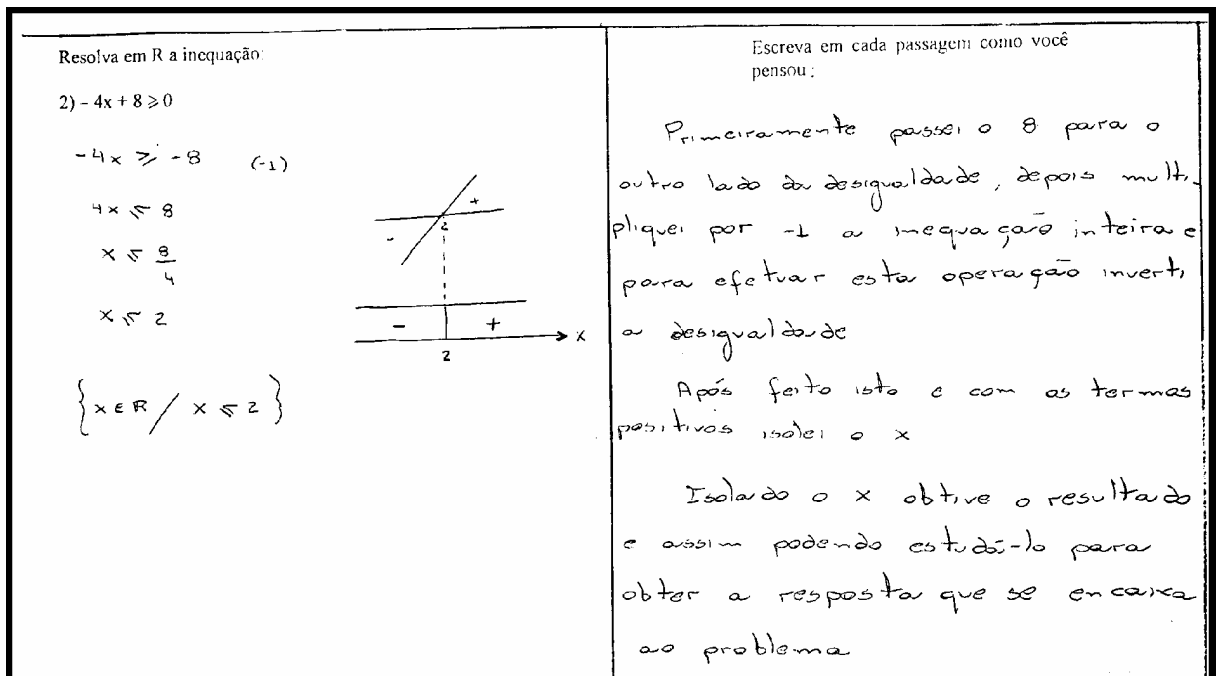 Resolva em R a inequação:
2) – 4x + 8 ⩾ 0
-4x ⩾ -8 (-1)
4x ⩽ 8
x ⩽ 8/4
x ⩽ 2
{x ∈ R / x ⩽ 2}
- 2 +
- +
2
x
Escreva em cada passagem como você
pensou :
Primeiramente passei o 8 para o
outro lado da desigualdade, depois multi-
pliquei por -1 a inequação inteira e
para efetuar esta operação inverti
a desigualdade
Após feito isto e com os termas
positivos isolei o x
Isolado o x obtive o resultado
e assim podendo estudá-lo para
obter a resposta que se encaixa
ao problema